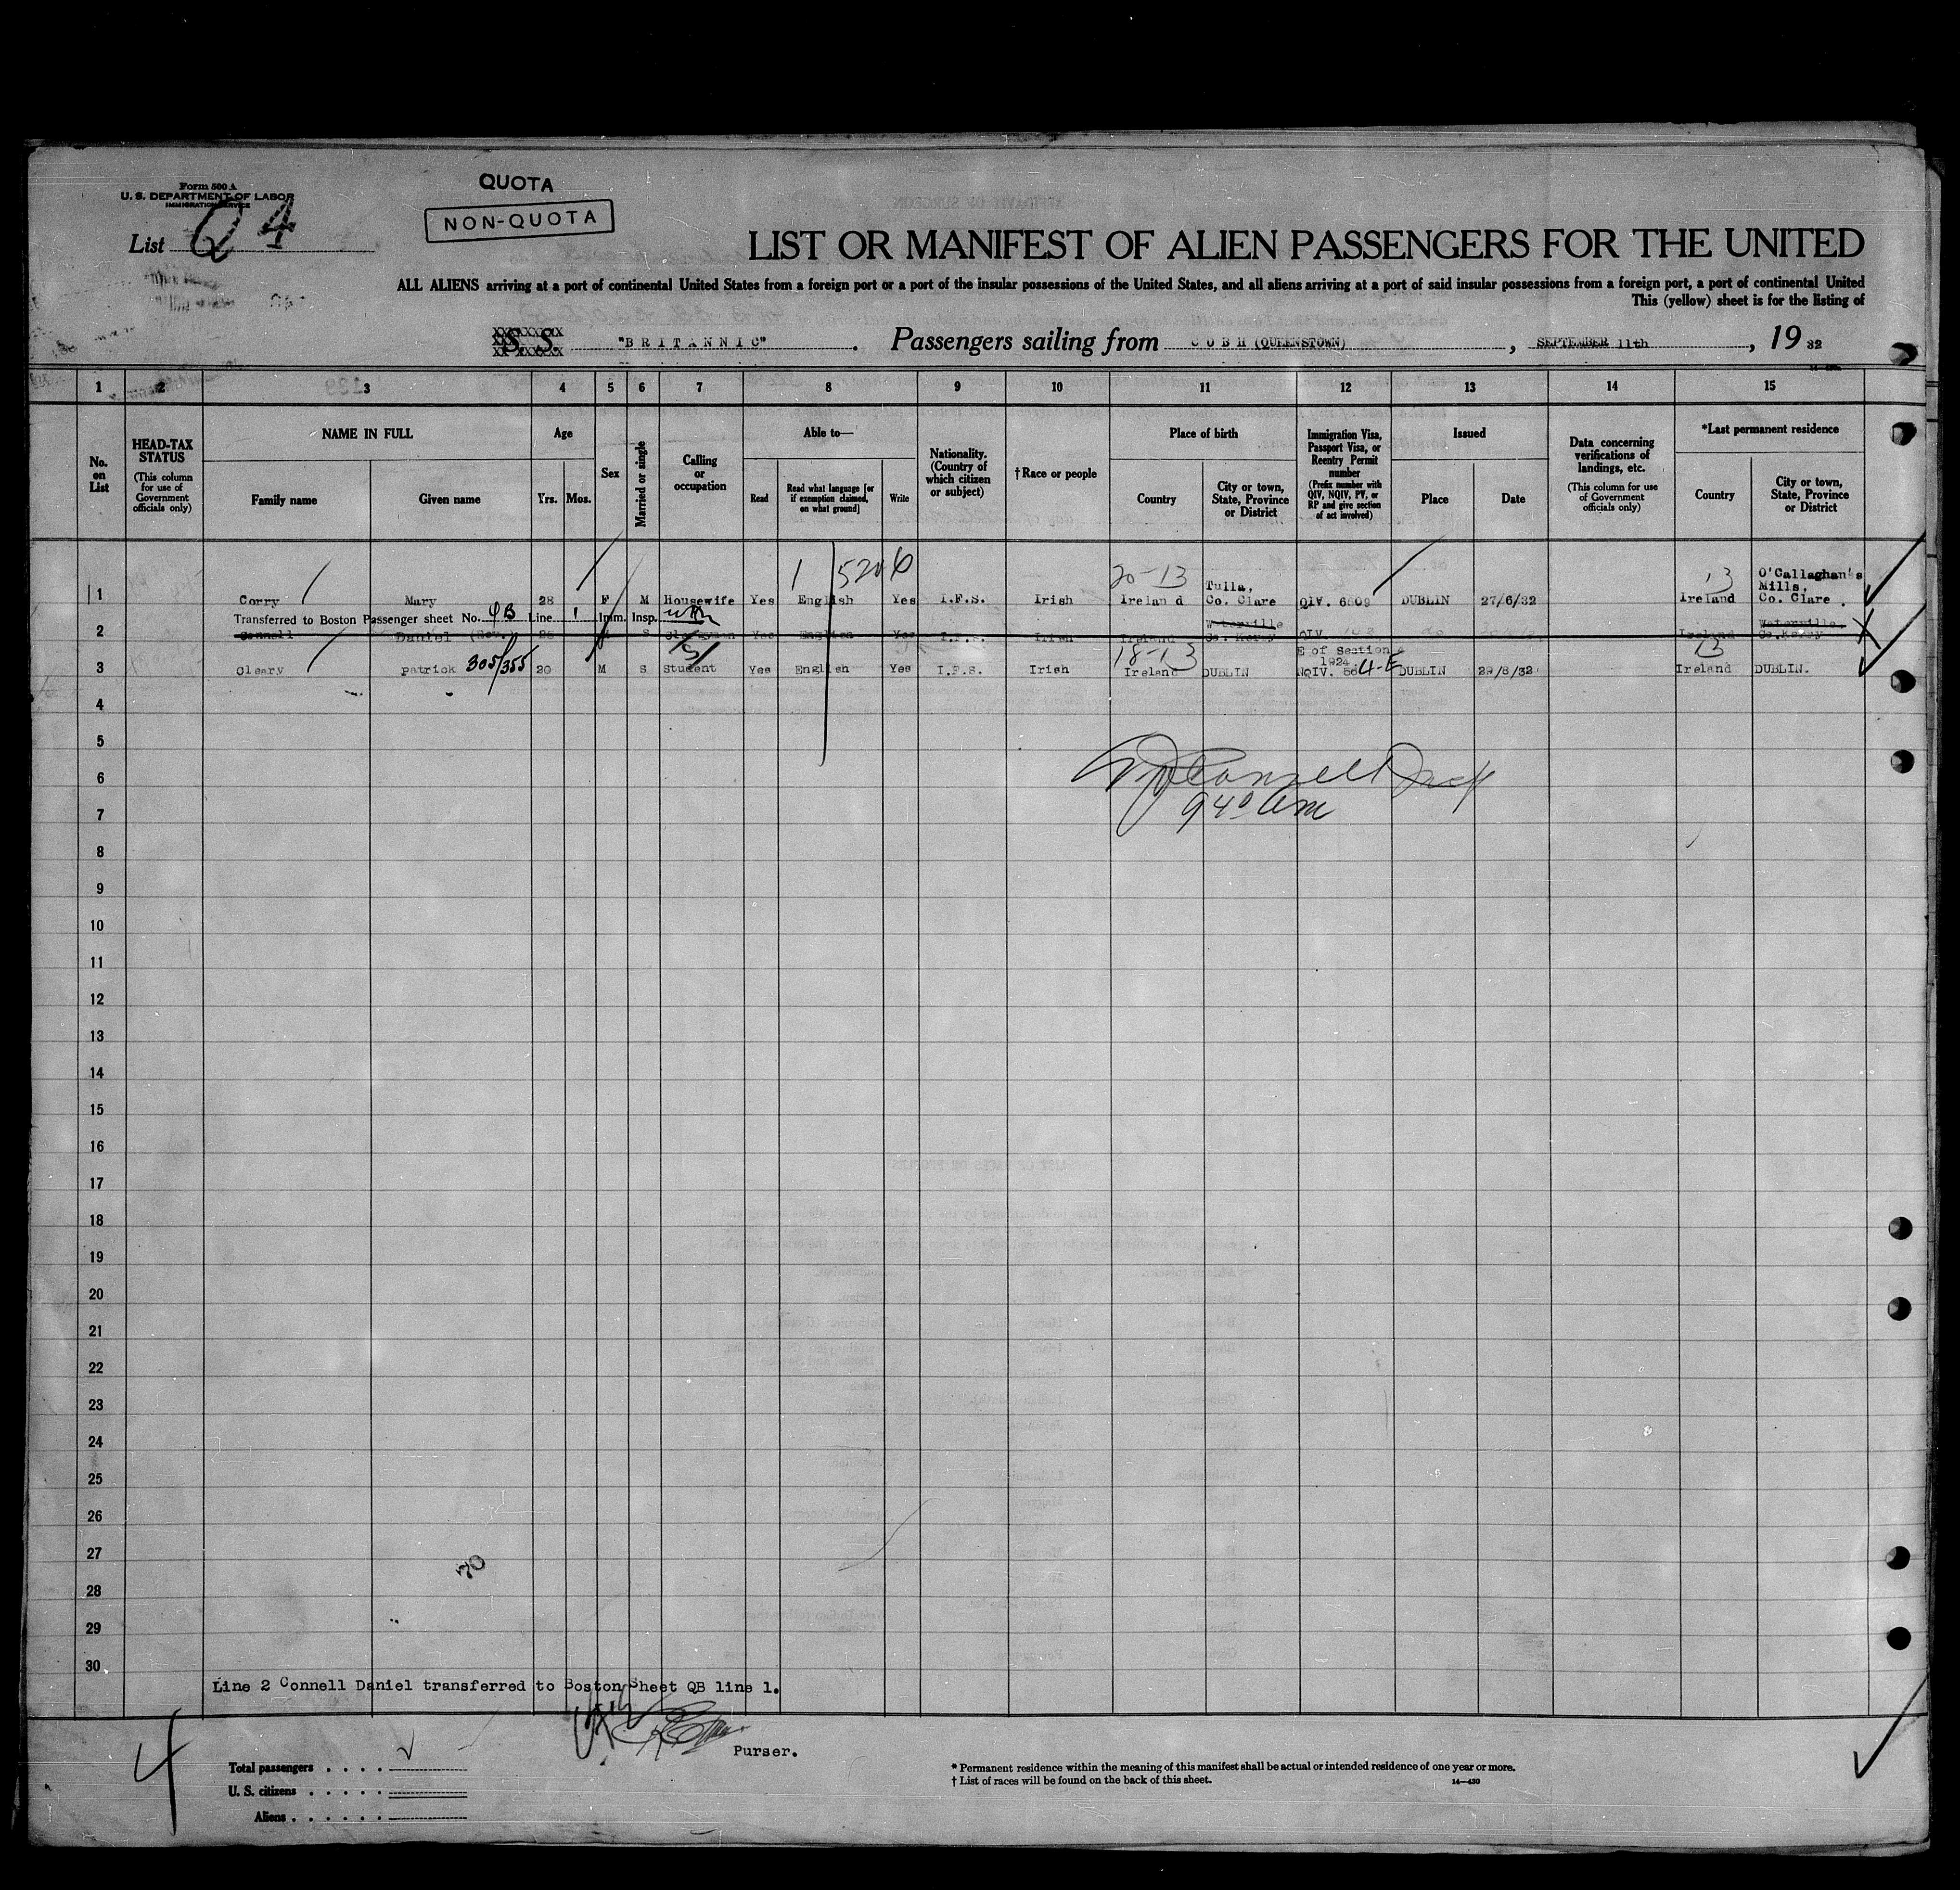 Form 500 A
U. S. DEPARTMENT OF LABOR
IMMIGRATION SERVICE
List Q 4
QUOTA
NON-QUOTA
LIST OR MANIFEST OF ALIEN PASSENGERS FOR THE UNITED
ALL ALIENS arriving at a port of continental United States from a foreign port or a port of the insular possessions of the United States, and all aliens arriving at a port of said insular possessions from a foreign port, a port of continental United
This (yellow) sheet is for the listing of
S. S. "BRITANNIC" . Passengers sailing from COBH (QUEENSTOWN) , SEPTEMBER 11th , 19 32
1 2 3 4 5 6 7 8 9 10 11 12 13 14 15
No. on List
HEAD-TAX STATUS
(This column for use of Government officials only)
NAME IN FULL
Family name
Given name
Age
Yrs.
Mos.
Sex
Married or single
Calling or occupation
Able to—
Read
Read what language [or if exemption claimed, on what ground]
Write
Nationality. (Country of which citizen or subject)
†Race or people
Place of birth
Country
City or town, State, Province or District
Immigration Visa, Passport Visa, or Reentry Permit number
(Prefix number with QIV, NQIV, PV, or RP and give section of act involved)
Issued
Place
Date
Data concerning verifications of landings, etc.
(This column for use of Government officials only)
*Last permanent residence
Country
City or town, State, Province or District
1 5206 20-13 Tulla, 13 O'Callaghan's Mills,
1 Corry Mary 28 F M Housewife Yes English Yes I.F.S. Irish Ireland Co. Clare QIV. 6509 DUBLIN 27/6/32 Ireland Co. Clare.
Transferred to Boston Passenger sheet No. QB Line 1 Imm. Insp.
Waterville Waterville.
2 Connell Daniel (Rev.) S Clergyman Yes English Yes I.F.S. Irish Ireland Co. Kerry QIV. Ireland Co.Kerry
18-13 E of Section 4 1924. 13
3 Cleary Patrick 305/355 20 M S Student Yes English Yes I.F.S. Irish Ireland DUBLIN NQIV. 4-E DUBLIN 29/8/32 Ireland DUBLIN.
4
5
6
940 am
7
8
9
10
11
12
13
14
15
16
17
18
19
20
21
22
23
24
25
26
27
28
29
30
Line 2 Connell Daniel transferred to Boston Sheet QB line 1.
4
Purser.
Total passengers . . . .
U. S. citizens . . . . .
Aliens . . . . . .
* Permanent residence within the meaning of this manifest shall be actual or intended residence of one year or more.
† List of races will be found on the back of this sheet.
14—430